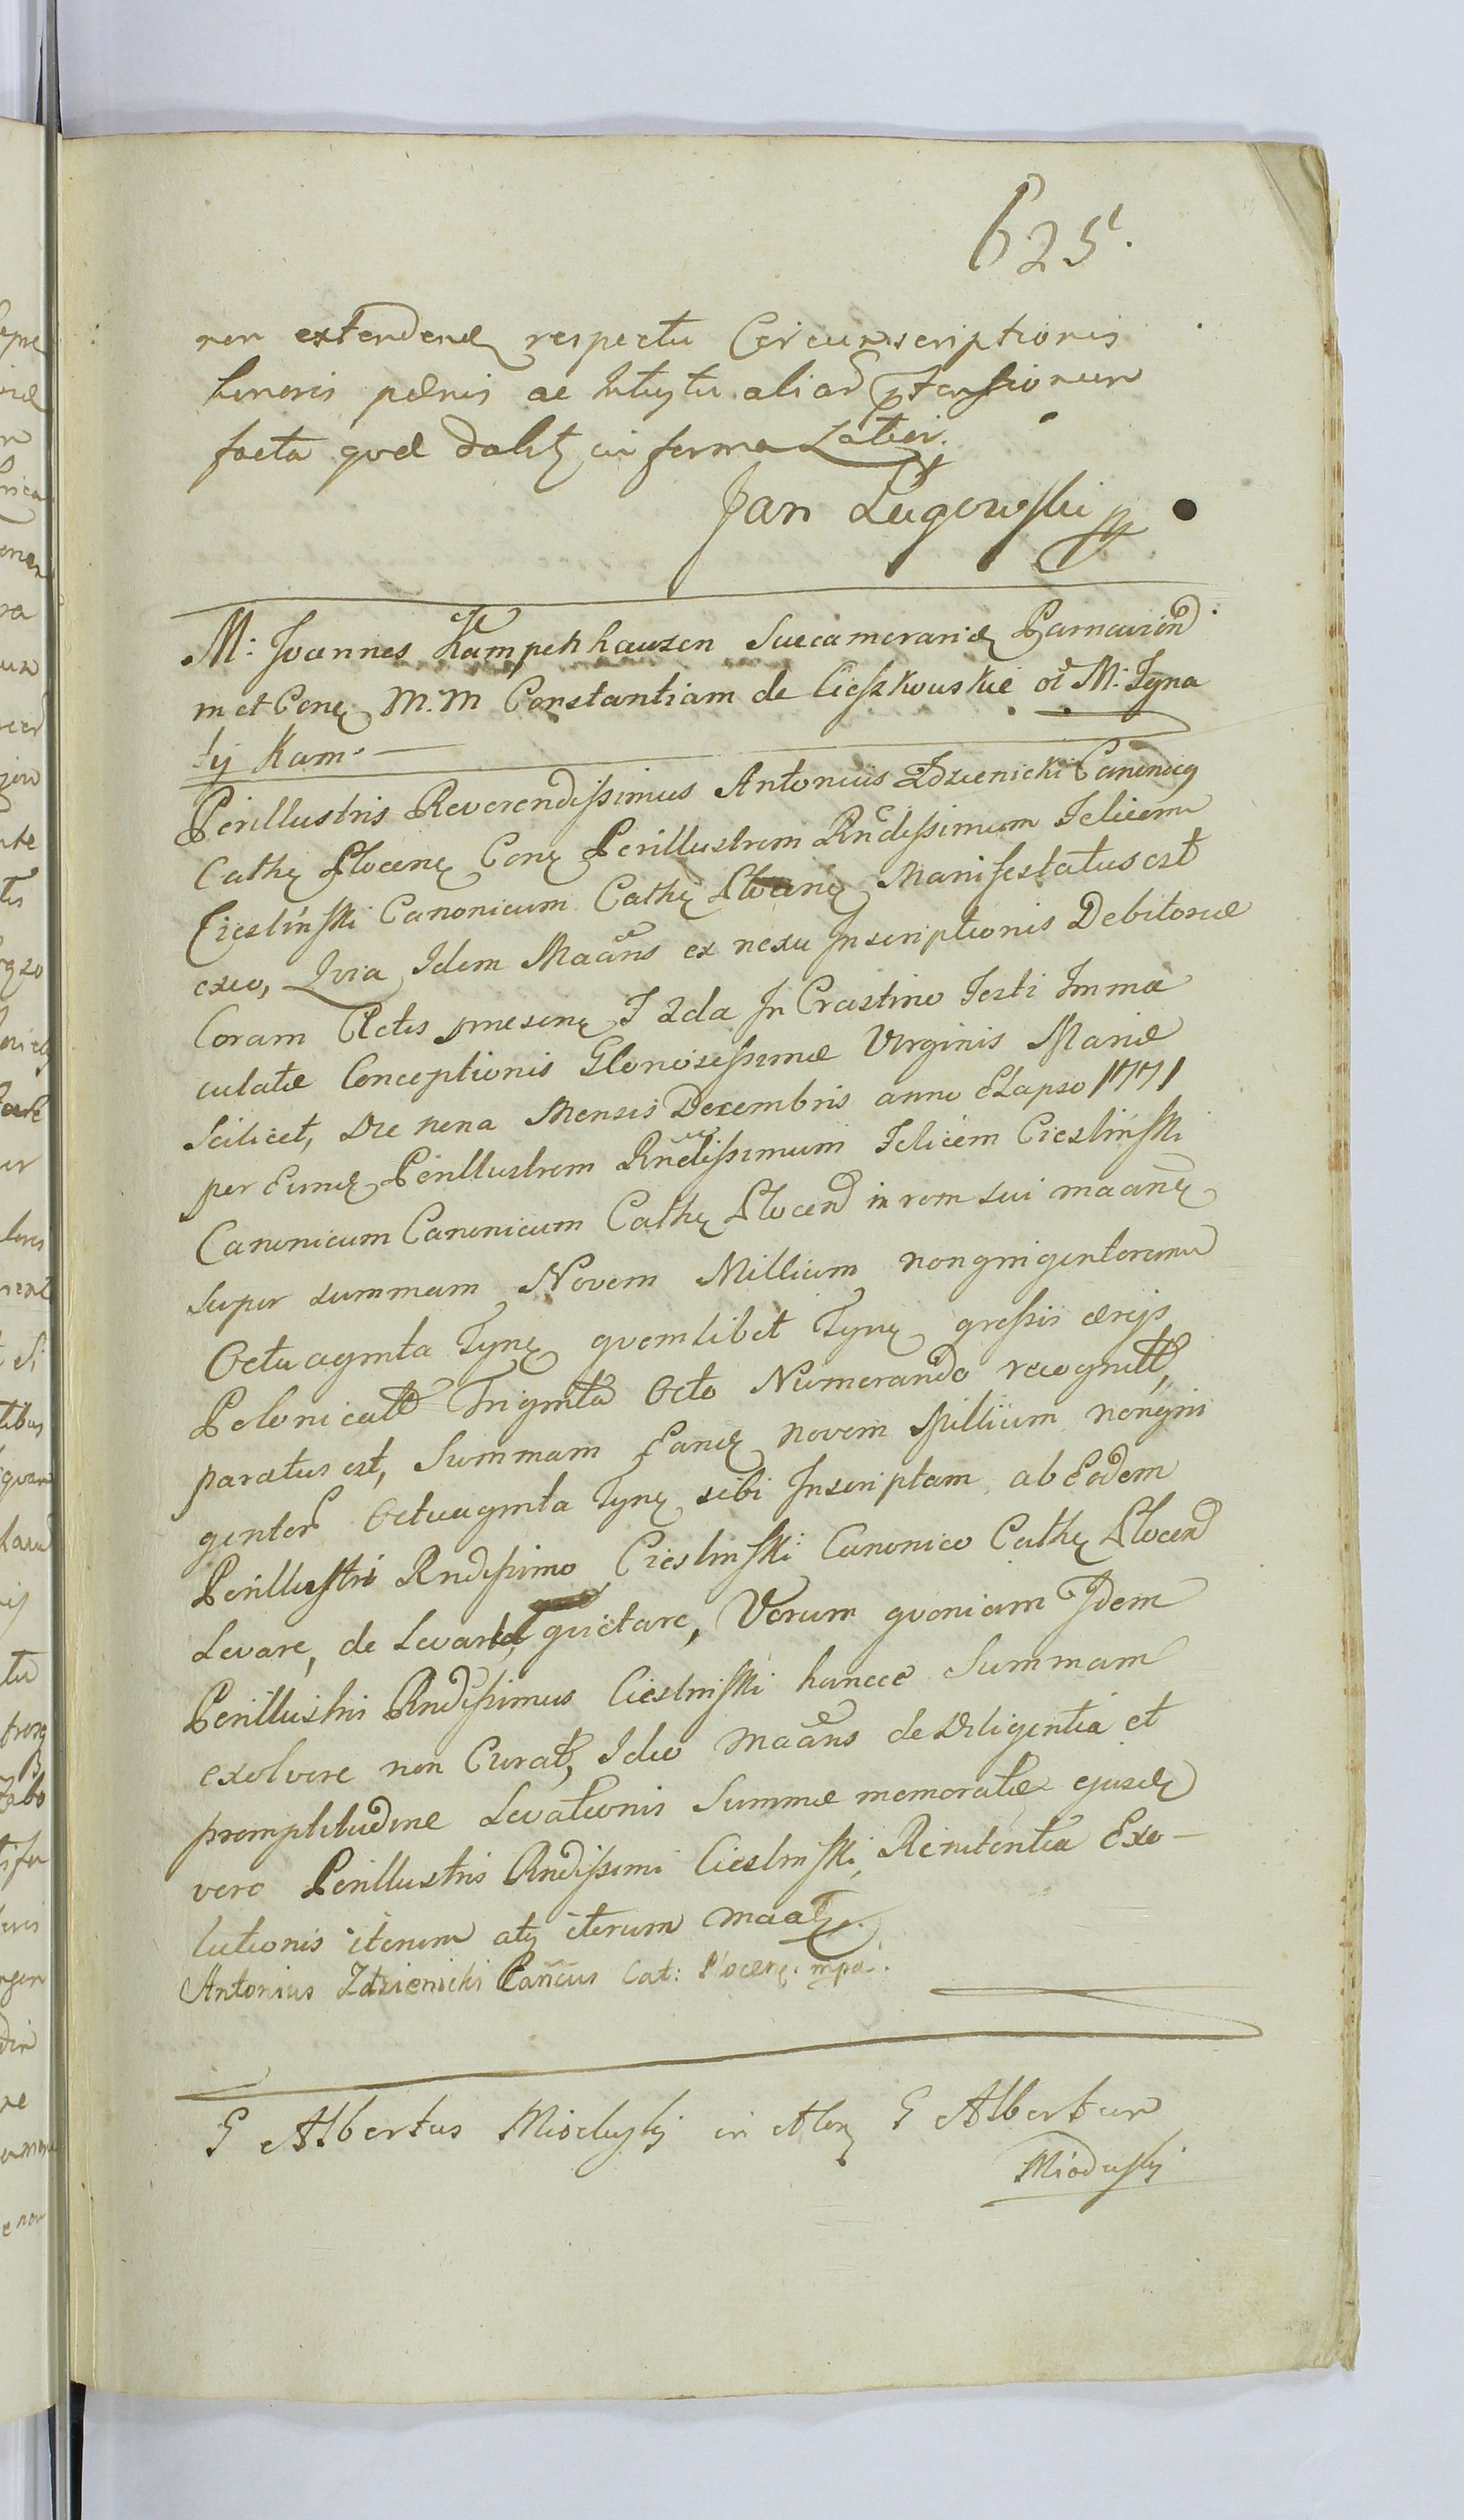 625.
non extenden respectu Circumscriptionis
honoris pænis ac Intuytu aliar ptensionum
facta quæ dabit in forma Latiori.
Jan Lugowski
M: Joannes Kampenhauzen Succamerarid Parnavien
m et Conq M.M Constantiam de Cieszkowskie ol M: Igna
tij Kam
Perillustris Reverendissimus Antonius Zdzienicki Canonicq
Cathq Plocenq Conq Perillustrem Rndissimum Felicem
Cieslinski Canonicum Cathq Plocenq Manifestatus est
exeo, Quia Idem Maans ex nexu Inscriptionis Debitoriæ
Coram Actis presenq F 2da In Crastino Festi Imma
culatæ Conceptionis Gloriosissimæ Virginis Mariæ
Scilicet, Die nona Mensis Decembris anno Elapso 1771
per Eumq Perillustrem Rndissimum Felicem Cieslinski
Canonicum Canonicum Cathq Plocen in rem sui maanq
super summam Novem Millium nongingentorum
Octuaginta Tynq quemlibet Tynq grossis æreis
Polonicall Triginta Octo Numerando recognitt,
paratus est, Summam Eanq novem Millium nongin
gentor Octuaginta Tynq sibi Inscriptam ab Eodem
Perillustri Rndissimo Cieslinski Canonico Cathq Plocen
Levare, de Levata, quietare, Verum quoniam Idem
Perillustris Rndissimus Cieslinski hancce Summam
exolvere non Curat, Ideo Maans de Diligentia et
promptitudine Levationis Summæ memoratæ ejusdq
vero Perillustris Rndissimi Cieslinski, Renitentia Exo-
lutionis iterum atq iterum maat.
Antonius Zdzienicki Cancus Cat: Plocenq. mpa.
G Albertus Mioduski in Alenq G Albertum
Mioduski